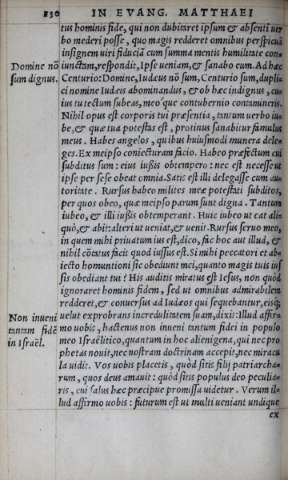 830 IN EVANG. MATTHAEI
tus hominis fide, qui non dubitaret ipsum & absenti ver
bo mederi posse, quo magis redderet omnibus perspicuã
insignem uiri fiduciã cum summa mentis humilitate con=
Domine nõ
sum dignus.
iunctam, respondit, Ipse ueniam, & sanabo eum. Ad hæc
Centurio: Domine, Iudæus nõ sum, Centurio sum, dupli=
ci nomine Iudæis abominandus, & ob hæc indignus, cu=
ius tu tectum subeas, meoq́ue contubernio contamineris.
Nihil opus est corporis tui præsentia, tantum uerbo iu=
be, & quæ tua potestas est, protinus sanabitur famulus
meus. Habes angelos, quibus huiusmodi munera dele=
ges. Ex meipso coniecturam facio. Habeo præfectum cui
subditus sum: eius iussis obtempero: nec est necesse ut
ipse per sese obeat omnia. Satis est illi delegasse cum au=
toritate. Rursus habeo milites meæ potestati subditos,
per quos obeo, quæ meipso parum sunt digna. Tantum
iubeo, & illi iussis obtemperant. Huic iubeo ut eat ali=
quò, & abit: alteri ut ueniat, & uenit. Rursus seruo meo,
in quem mihi priuatum ius est, dico, fac hoc aut illud, &
nihil cõtatus facit quod iussus est. Si mihi peccatori et ab=
iecto homuntioni sic obediunt mei, quanto magis tuis ius
sis obediant tui? His auditis miratus est Iesus, non quòd
ignoraret hominis fidem, sed ut omnibus admirabilem
redderet, & conuersus ad Iudæos qui sequebantur, eisq́;
Non inueni
tantam fidẽ
in Israël.
uelut exprobrans incredulitatem suam, dixit: Illud affir=
mo uobis, hactenus non inueni tantam fidei in populo
meo Israëlitico, quantum in hoc alienigena, qui nec pro
phetas nouit, nec uostram doctrinam accepit, nec miracu
la uidit. Vos uobis placetis, quòd sitis filij patriarcha=
rum, quos deus amauit: quòd sitis populus deo peculia=
ris, cui salus hæc præcipue promissa uidetur. Verum il=
lud affirmo uobis: futurum est ut multi ueniant undique
ex